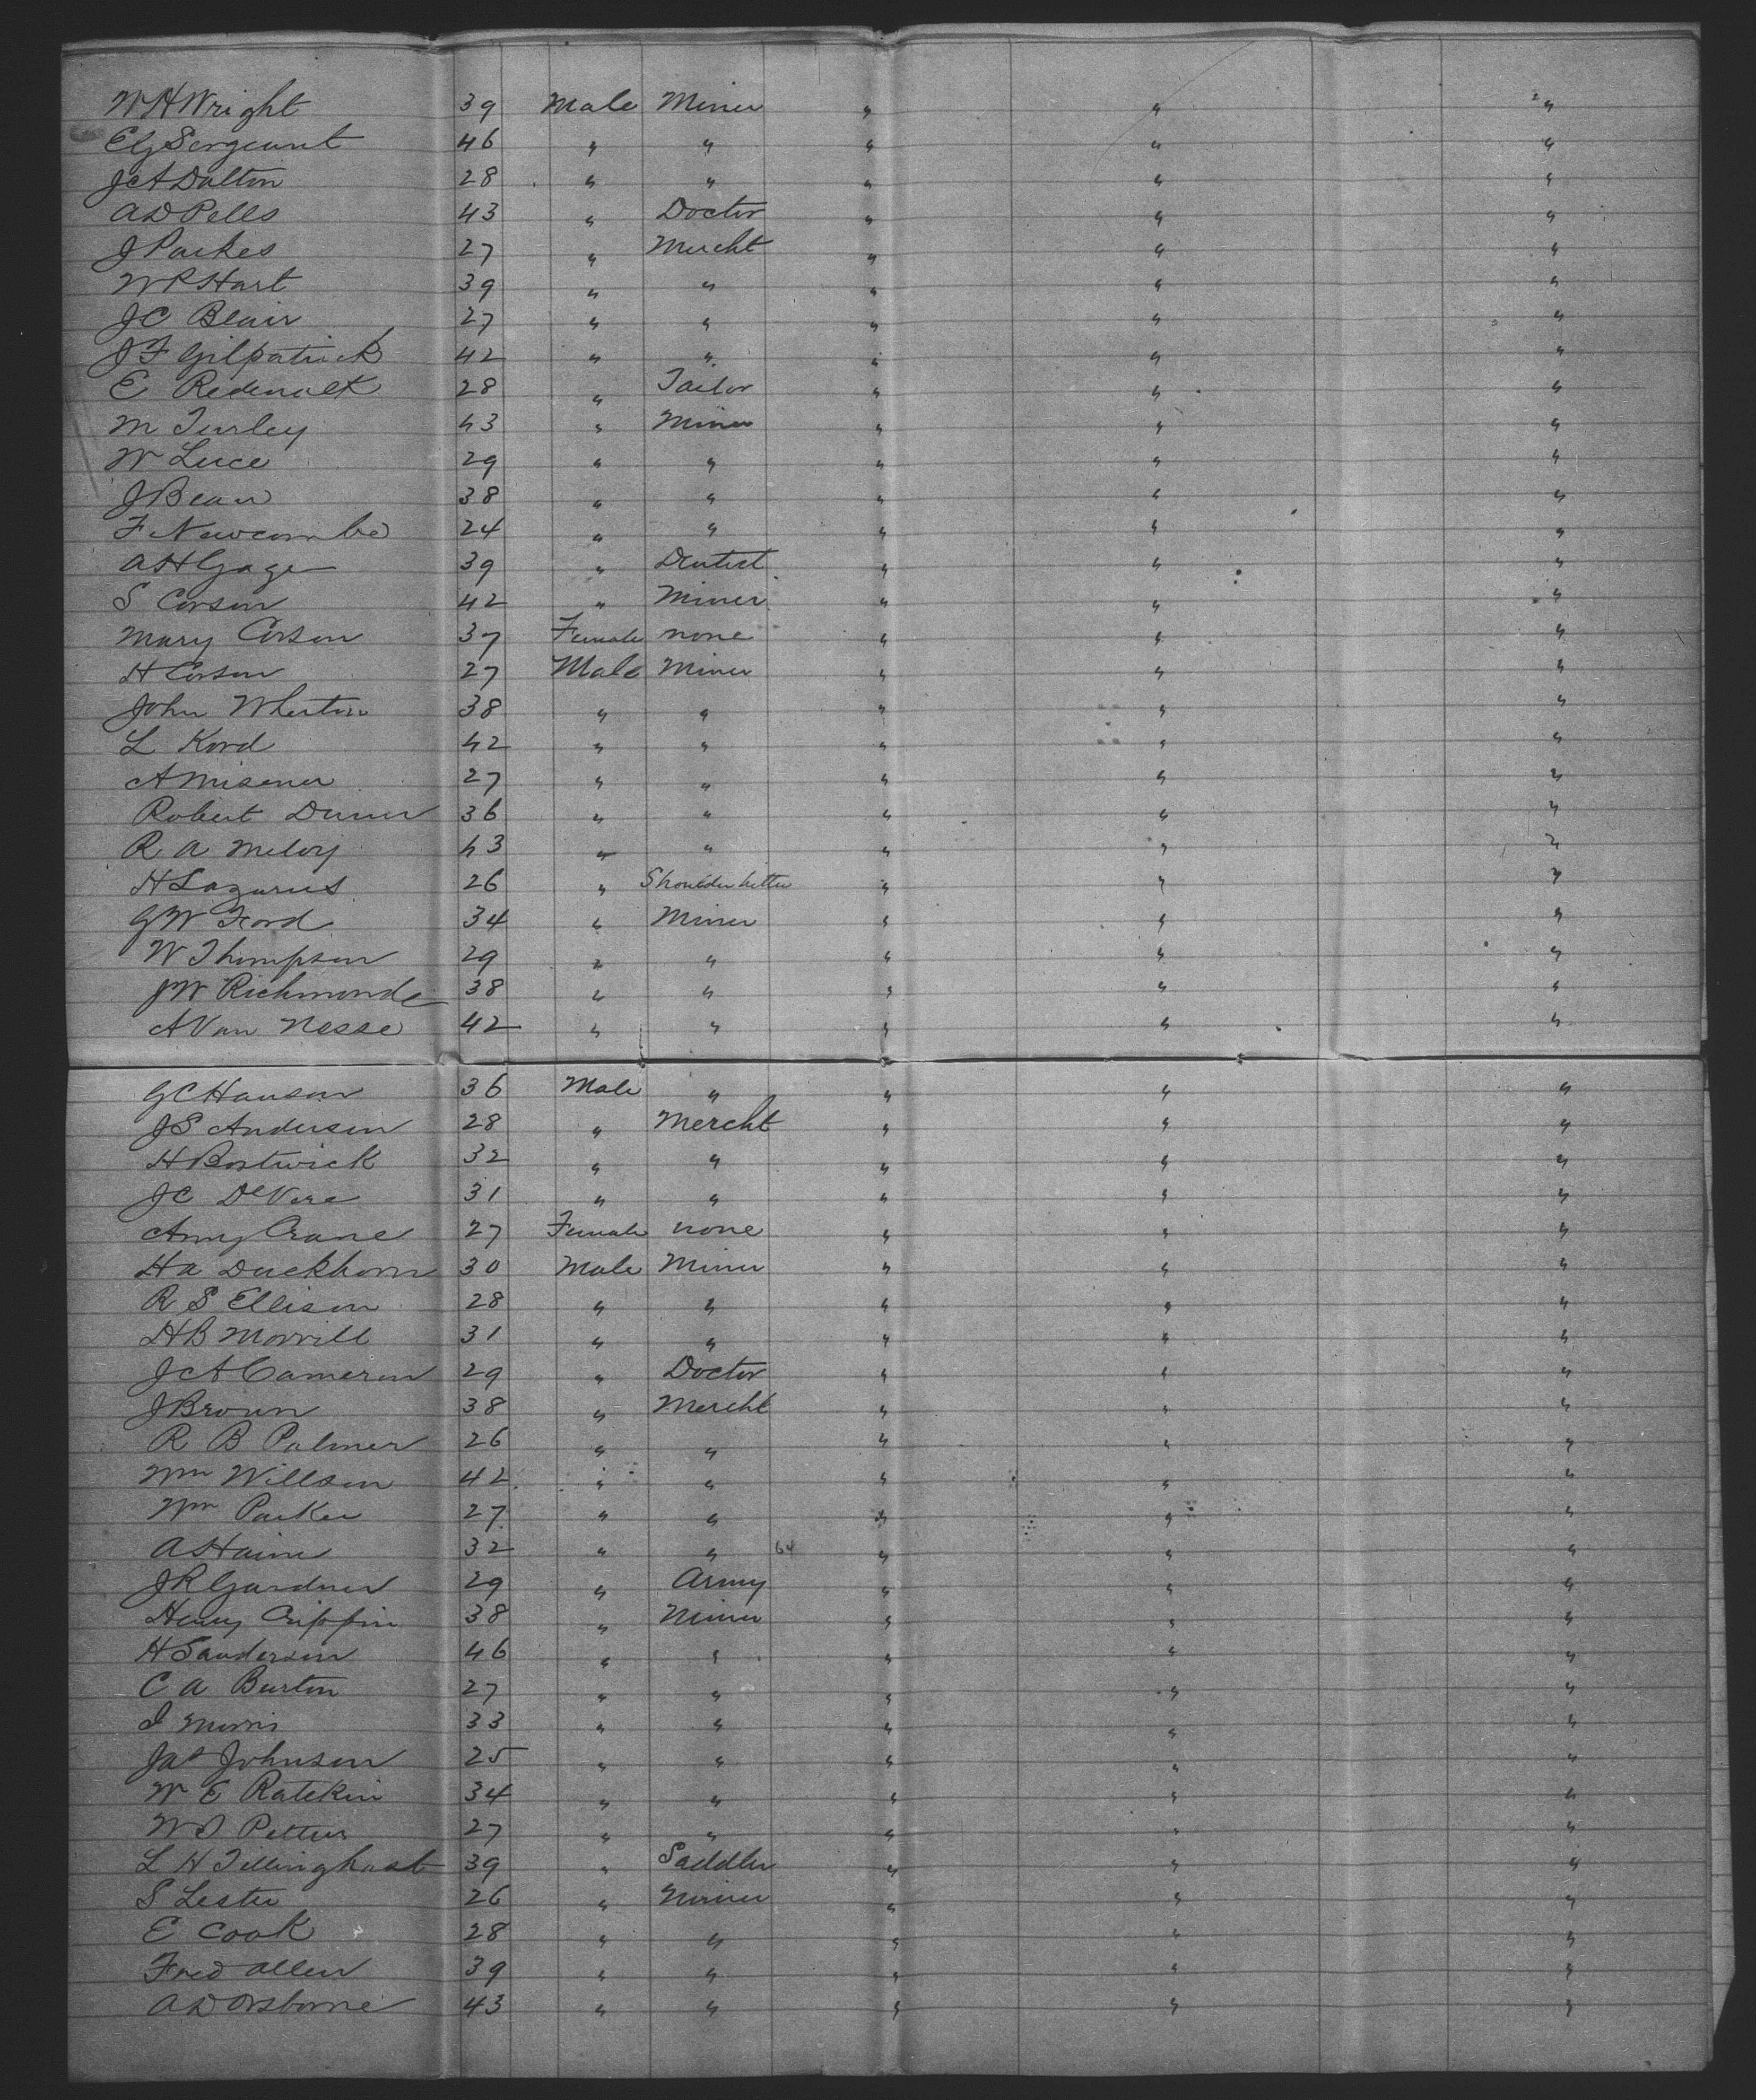 W H Wright 39 Male Miner " " "
E G Sergeant 46 " " " " "
J A Dalton 28 " " " " "
A D Pells 43 " Doctor " " "
J Parkes 27 " Mercht " " "
W R Hart 39 " " " " "
J C Blair 27 " " " " "
J F Gilpatrick 42 " " " " "
E 28 " Tailor " " "
M Turley 43 " Miner " " "
W Luce 29 " " " " "
J Bean 38 " " " " "
F Newcombe 24 " " " " "
A H Gage 39 " Dentist " " "
S Corson 42 " Miner " " "
Mary Corson 37 Female none " " "
H Corson 27 Male Miner " " "
John Wherton 38 " " " " "
L Kord 42 " " " " "
A Misener 27 " " " " "
Robert 36 " " " " "
R A Meloy 43 " " " " "
H Lazarus 26 " Shoulder hitter " " "
G W Ford 34 " Miner " " "
W Thompson 29 " " " " "
J W Richmond 38 " " " " "
A Van Nesse 42 " " " " "
G C Hanson 36 Male " " " "
J S Anderson 28 " Mercht " " "
H Bostwick 32 " " " " "
J C DeVere 31 " " " " "
Amy Crane 27 Female none " " "
H A Duckhorn 30 Male Miner " " "
R S Ellison 28 " " " " "
H B Morrill 31 " " " " "
J A Cameron 29 " Doctor " " "
J Brown 38 " Mercht " " "
R B Palmer 26 " " " " "
Wm Willson 42 " " " " "
Wm Parker 27 " " " " "
A Haim 32 " " 64 " " "
J R Gardner 29 " Army " " "
Henry Crippin 38 " Miner " " "
H Sanderson 46 " " " " "
C A Burton 27 " " " " "
I Morris 33 " " " " "
Jas Johnson 25 " " " " "
W E Ratekin 34 " " " " "
W D Pettus 27 " " " " "
L H Tillinghast 39 " Saddler " " "
S Lester 26 " Miner " " "
E Cook 28 " " " " "
Fred Allen 39 " " " " "
A D Osborne 43 " " " " "